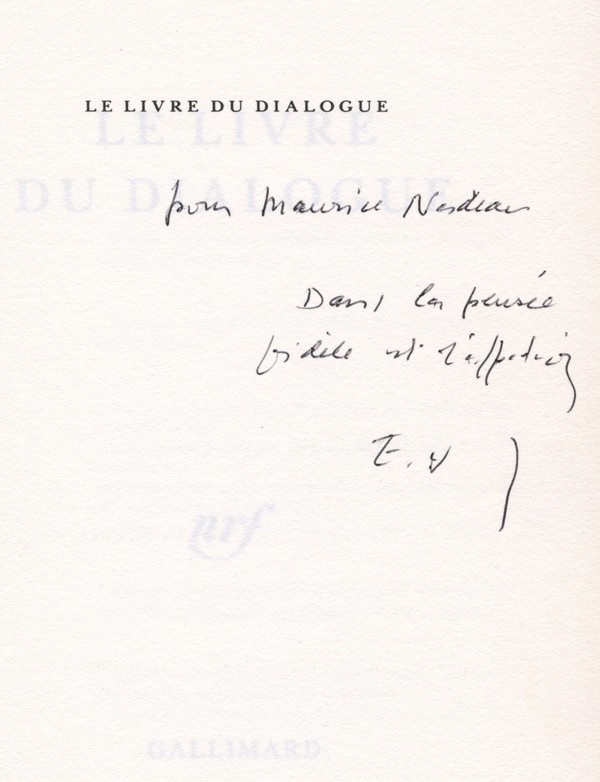 LE LIVRE DU DIALOGUE
LE LIVRE
DU DIALOGUE
pour Maurice Nadeau
Dans la pensée
fidèle et l'affection
E.
nrf
GALLIMARD